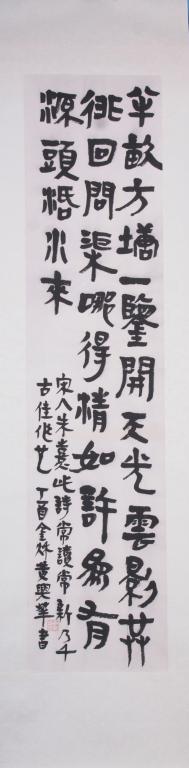 半畝方塘一鑒開天光雲影共
徘回問渠哪得清如許為有
源頭活水来
宋人朱熹此詩常讀常新乃千
古佳作也 丁酉金秋黄興華書